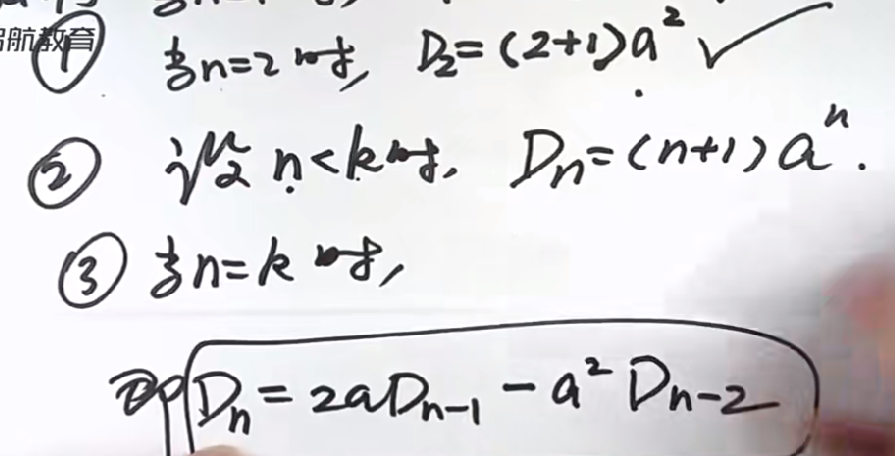 航教育
① 当n=2时, D₂=(2+1)a² ✓
② 设 n<k时, Dₙ=(n+1)aⁿ.
③ 当n=k时,
即 Dₙ = 2aDₙ₋₁ - a²Dₙ₋₂